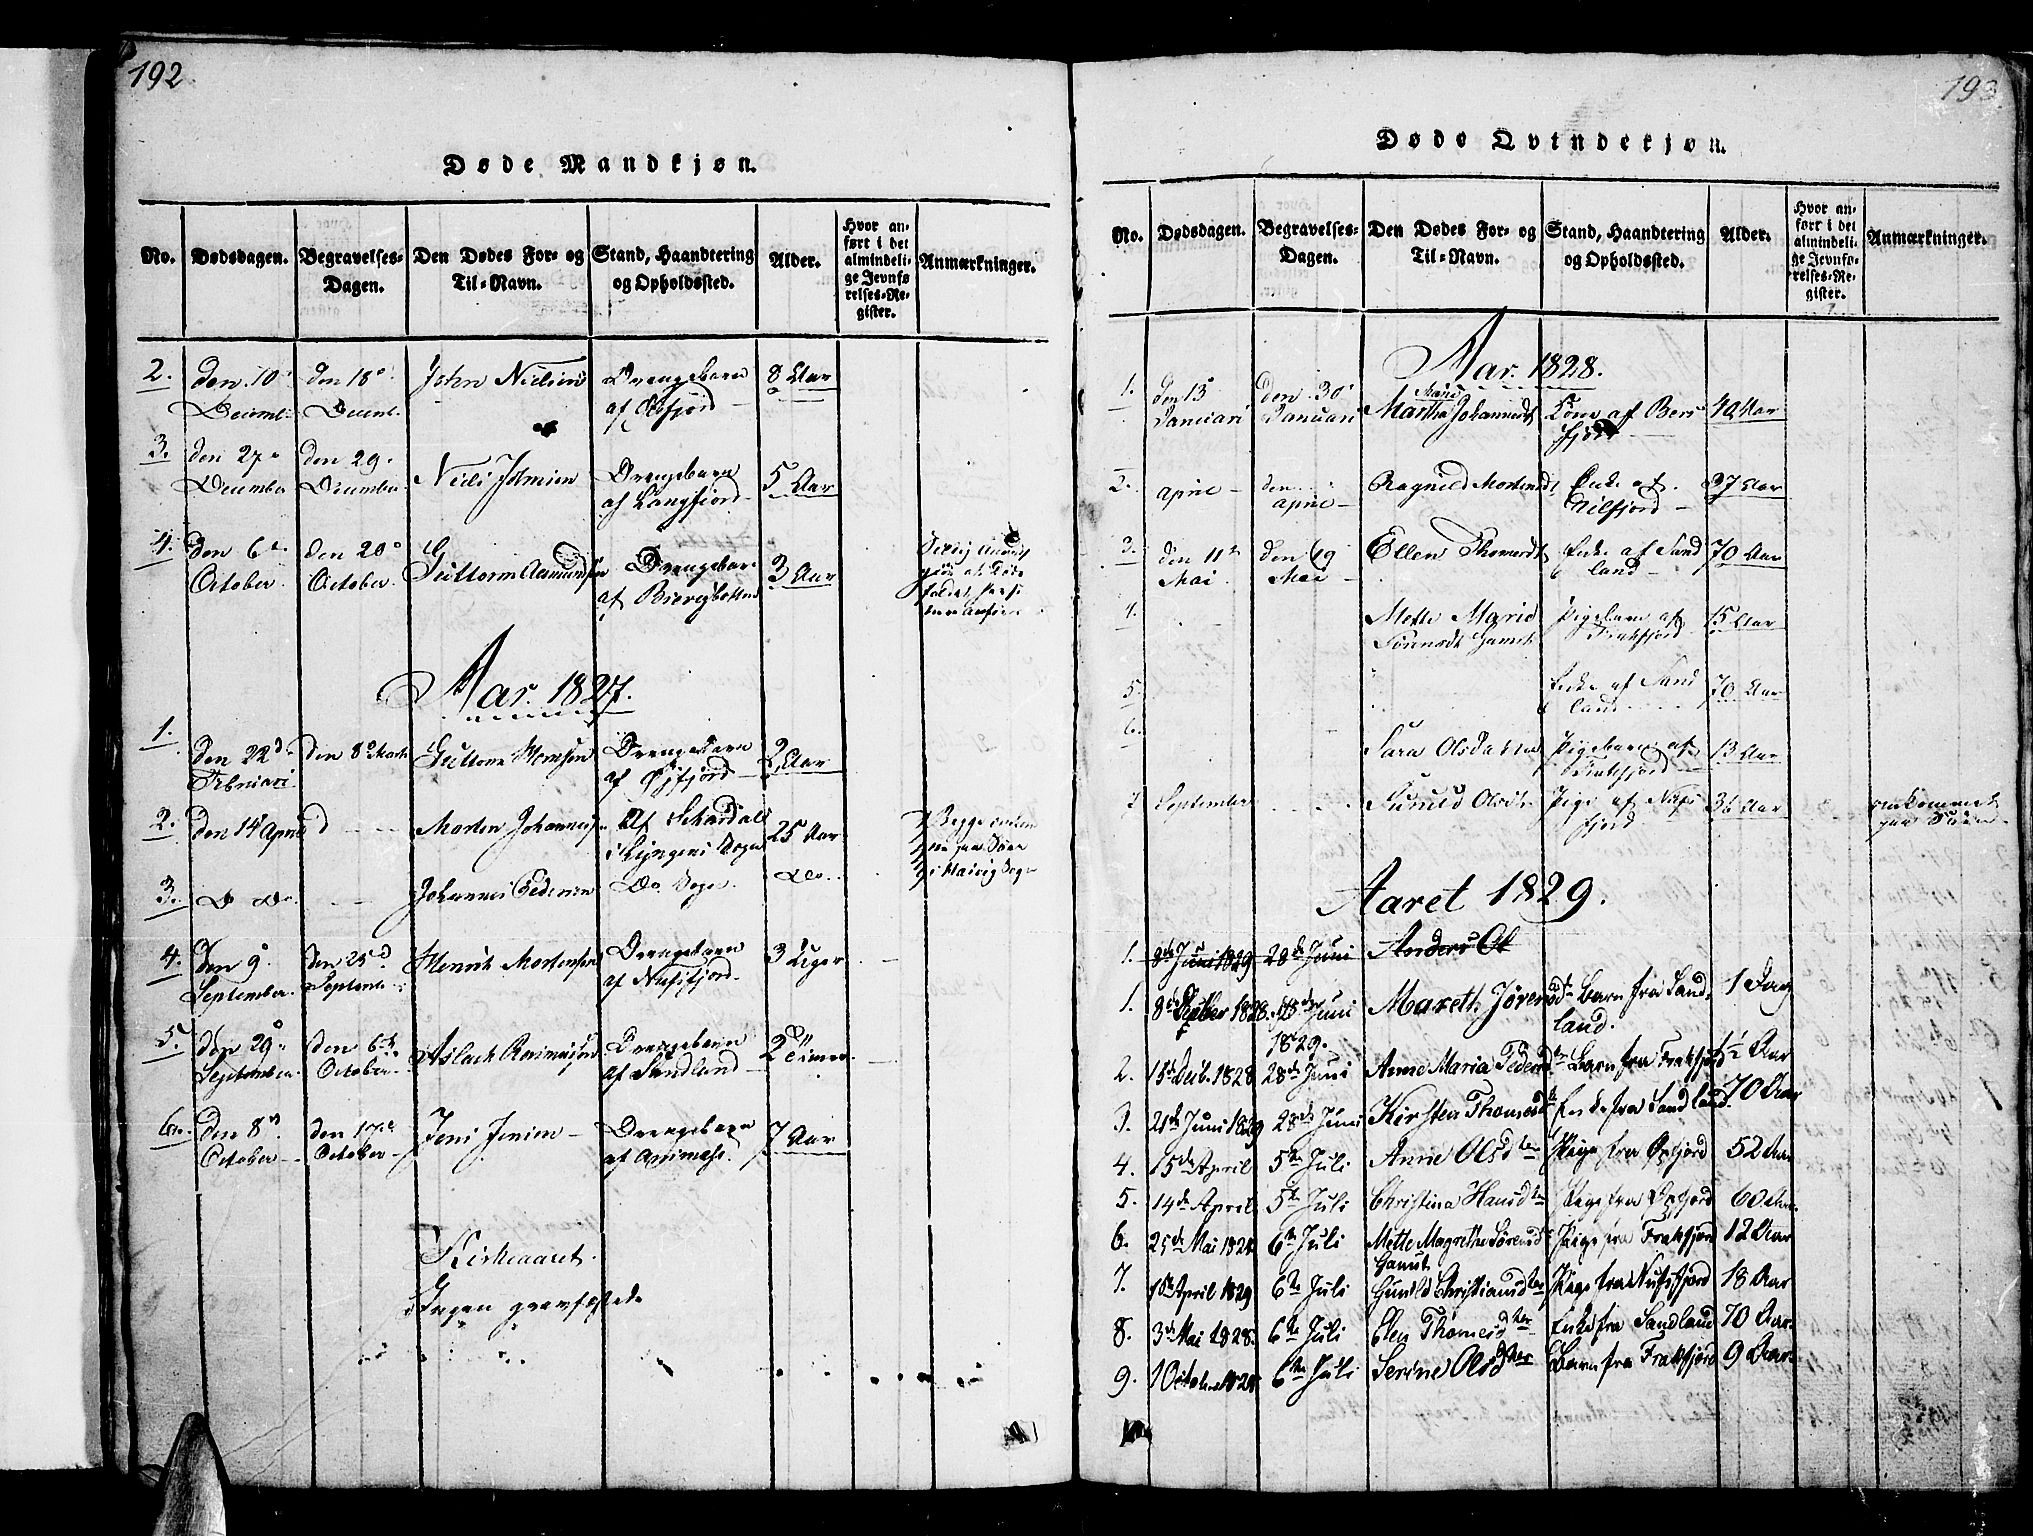 192.
Døde Mandkjøn.
No. Dødsdagen. Begravelses-Dagen. Den Dødes For- og Til-Navn. Stand, Haandtering og Opholdssted. Alder. Hvor anført i det almindelige Jevnførelses-Register. Anmærkninger.
2. den 10de Decemb. den 18de Decemb. John Nielsen Drengebarn af Oxfjord 8 Aar
3. den 27de December den 29de December Niels Johnsen Drengebarn af Langfjord 5 Aar
4. den 6te October den 20de October Guttorm Asmundsen Drengebarn af 3 Aar
Aar. 1827.
1. den 22d Februari den 8de Marts Guttorm Drengebarn af Øxfjord 2 Aar
2. den 14de April Morten Johannes. Af Skardal i Lyngens Sogn 25 Aar Begge
3. D Do. Johannes Pedersen Do Sogn. Do.
4. den 9. September den 25d Septemb. Henrik Mortensen Drengebarn af Nufsfjord 3 Uger
5. den 29de September den 6te October Aslach Rasmussen Drengebarn af Sandland 2 Timer
6. den 8de October den 17de October Jens Jensen Drengebarn af 7 Aar
Kirkeaaret.
Ingen gravfæstede
193.
Døde Qvindekjøn.
No. Dødsdagen. Begravelses-Dagen. Den Dødes For- og Til-Navn. Stand, Haandtering og Opholdssted. Alder. Hvor anført i det almindelige Jevnførelses-Register. Anmærkninger.
Aar. 1828.
1. den 13de Januari den 30de Januari Martha Johannesdt Kone af Bersfjord 40 Aar
2. april den april Ragnild Mortensdt Enke af 37 Aar
3. den 11te Mai den 19 Mai Ellen Thomesdt Enke af Sandland 70 Aar
4. Mette Marie Sørensdt Pigebarn af Frakfjord 15 Aar
5. Enke af Sandland 70 Aar
6. Sara Olsdatter Pigebarn af Frakfjord 13 Aar
7 September Gunild Olsdt. Pige af Nufsfjord 36 Aar omkommet paa Søen
Aaret 1829.
1. 8de Juni 1829 28de Juni Anders Ol
1. 8de 1828. Juni 1829. Mareth Jørensdt. Barn fra Sandland. 1 Dag
2. 15de Decb. 1828 28de Juni Anne Maria Pedersdt Barn fra Frakfjord ½ Aar
3. 21de Juni 1829 28de Juni Kirsten Thomesdt Enke fra Sandland. 70 Aar
4. 15de April 5te Juli Anne Olsdter Pige fra Øxfjord 52 Aar
5. 14de April 5te Juli Christina Hansdter Pige fra Øxfjord 60 Aar.
6. 25de Mai 1828 6te Juli Mette Magrethe Sørensdt Pige fra Frakfjord 12 Aar
7. April 1829 6te Juli Gunild Christiansdter Pige fra Nufsfjord 18 Aar
8. 3de Mai 1828. 6te Juli Elen Thomesdter Enke fra Sandland 70 Aar.
9. October 1828 6te Juli Serine Olsdter Barn fra Frakfjord 9 Aar.